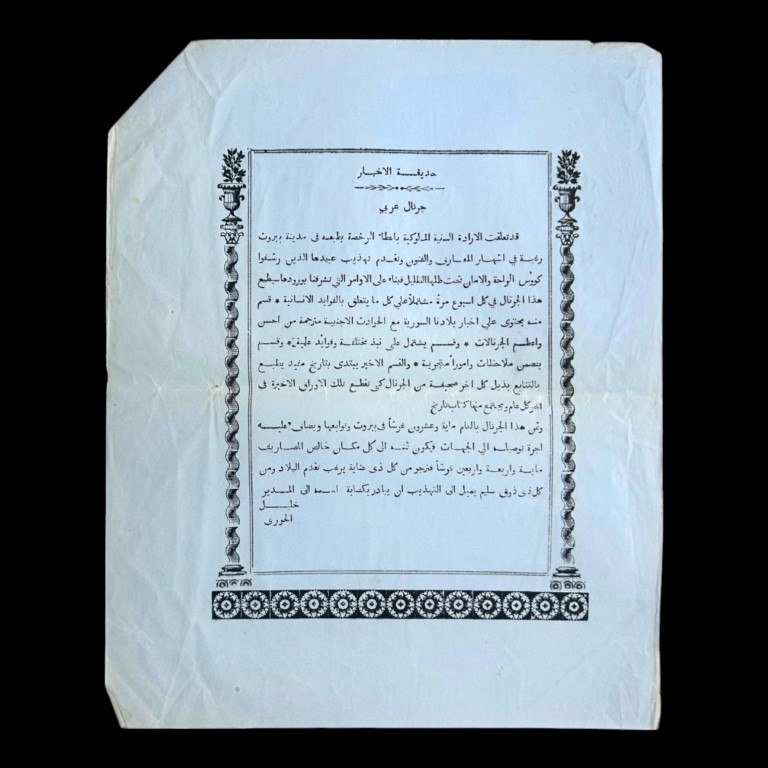 حديقة الاخبار
جرنال عربي
قد تعلقت الارادة السنية الملوكية باعطاء الرخصة بطبعه في مدينة بيروت
رغبة في اشهار المعارف والفنون وتقدم تهذيب عبيدها الذين رشفوا
كووس الراحة والامان تحت ظلها الظليل فبناء على الاوامر التي تشرفنا بورودها سيطبع
هذا الجرنال في كل اسبوع مرة مشتملاً علي كل ما يتعلق بالفوايد الانسانية * قسم
منه يحتوى علي اخبار بلادنا السورية مع الحوادث الاجنبية مترجمة من احسن
واعظم الجرنالات * وقسم يشتمل على نبذ مختلفة وفوايد علمية * وقسم
يتضمن ملاحظات وامورا متجرية * والقسم الاخير يبتدى بتاريخ مفيد ينطبع
بالتتابع بذيل كل اخر صحيفة من الجرنال كي تقطع تلك الاوراق الاخيرة في
اخر كل عام ويجتمع منها كتاب تاريخ
وثمن هذا الجرنال بالعام ماية وعشرون غرشا في بيروت وتوابعها ويضاف عليه
اجرة توصيله الي الجهات فيكون ثمنه الى كل مكان خالص المصاريف
ماية واربعة واربعين غرشا فنرجو من كل ذى عناية يرغب تقدم البلاد ومن
كل ذى ذوق سليم يميل الى التهذيب ان يبادر بكتابة اسمه الى المدير
خليل
الخورى